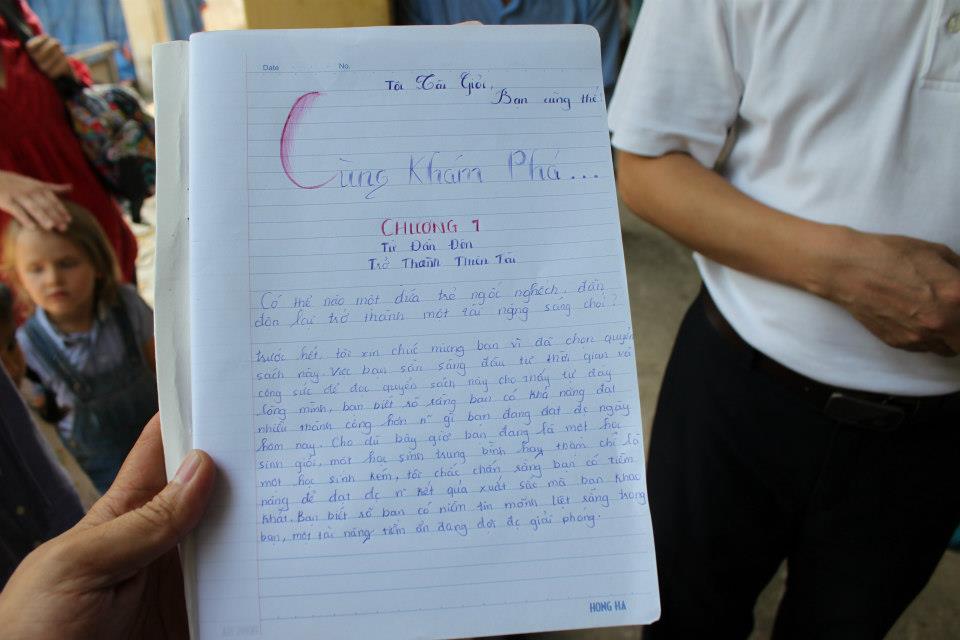 Date No.
Tôi Tài Giỏi,
Bạn cũng thế!
Cùng Khám Phá...
CHƯƠNG 1
Từ Đần Độn
Trở Thành Thiên Tài
Có thể nào một đứa trẻ ngốc nghếch, đần
độn lại trở thành một tài năng sáng chói?
trước hết, tôi xin chúc mừng bạn vì đã chọn quyển
sách này. Việc bạn sẵn sàng đầu tư thời gian và
công sức để đọc quyển sách này cho thấy tự đáy
lòng mình, bạn biết rõ rằng bạn có khả năng đạt
nhiều thành công hơn n~ gì bạn đang đạt đc ngày
hôm nay. Cho dù bây giờ bạn đang là một học
sinh giỏi, một học sinh trung bình hay thậm chí là
một học sinh kém, tôi chắc chắn rằng bạn có tiềm
năng để đạt đc n~ kết quả xuất sắc mà bạn khao
khát. Bạn biết rõ bạn có niềm tin mãnh liệt rằng trong
bạn, một tài năng tiềm ẩn đang đợi đc giải phóng.
HONG HA